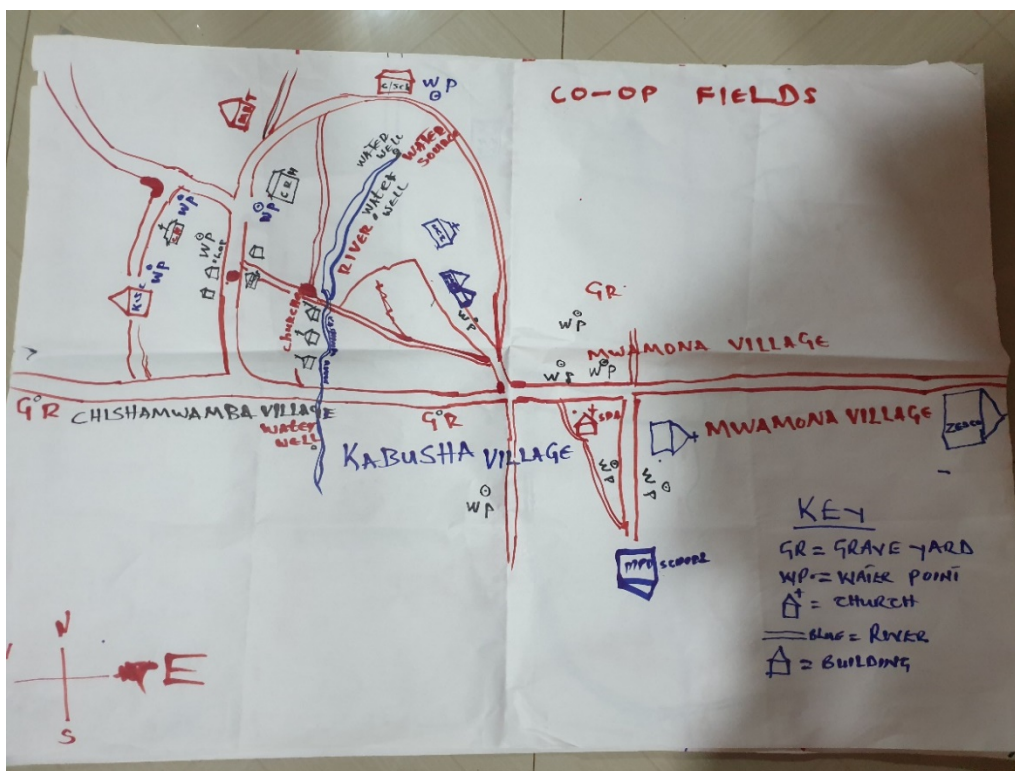 C/SCH
WP
CO-OP FIELDS
MKT
WATER WELL
WATER SOURCE
CRH
WP
WATER WELL
RIVER
WP
WP
SHOP
WP
K.SC
CHURCHES
WP
GR
WP
MWAMONA VILLAGE
WP
WP
GR
CHISHAMWAMBA VILLAGE
WATER WELL
GR
KABUSHA VILLAGE
SDA
MWAMONA VILLAGE
ZESCO
WP
WP
WP
MPD SCHOOL
KEY
GR = GRAVE YARD
WP = WATER POINT
= CHURCH
BLUE = RIVER
= BUILDING
N
E
S